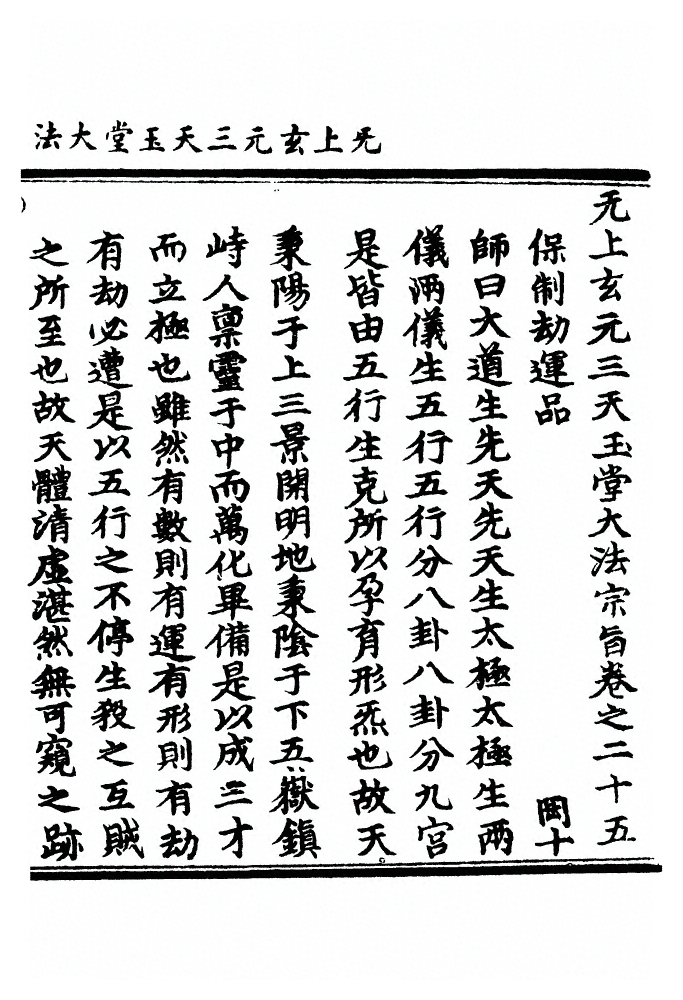 无上玄元三天玉堂大法
无上玄元三天玉堂大法宗旨卷之二十五
罔十
保制劫運品
師曰大道生先天先天生太極太極生兩
儀兩儀生五行五行分八卦八卦分九宮
是皆由五行生克所以孕育形炁也故天
秉陽于上三景開明地秉陰于下五嶽鎮
峙人稟靈于中而萬化畢備是以成三才
而立極也雖然有數則有運有形則有劫
有劫必遭是以五行之不停生殺之互賊
之所至也故天體清虛湛然無可窺之跡